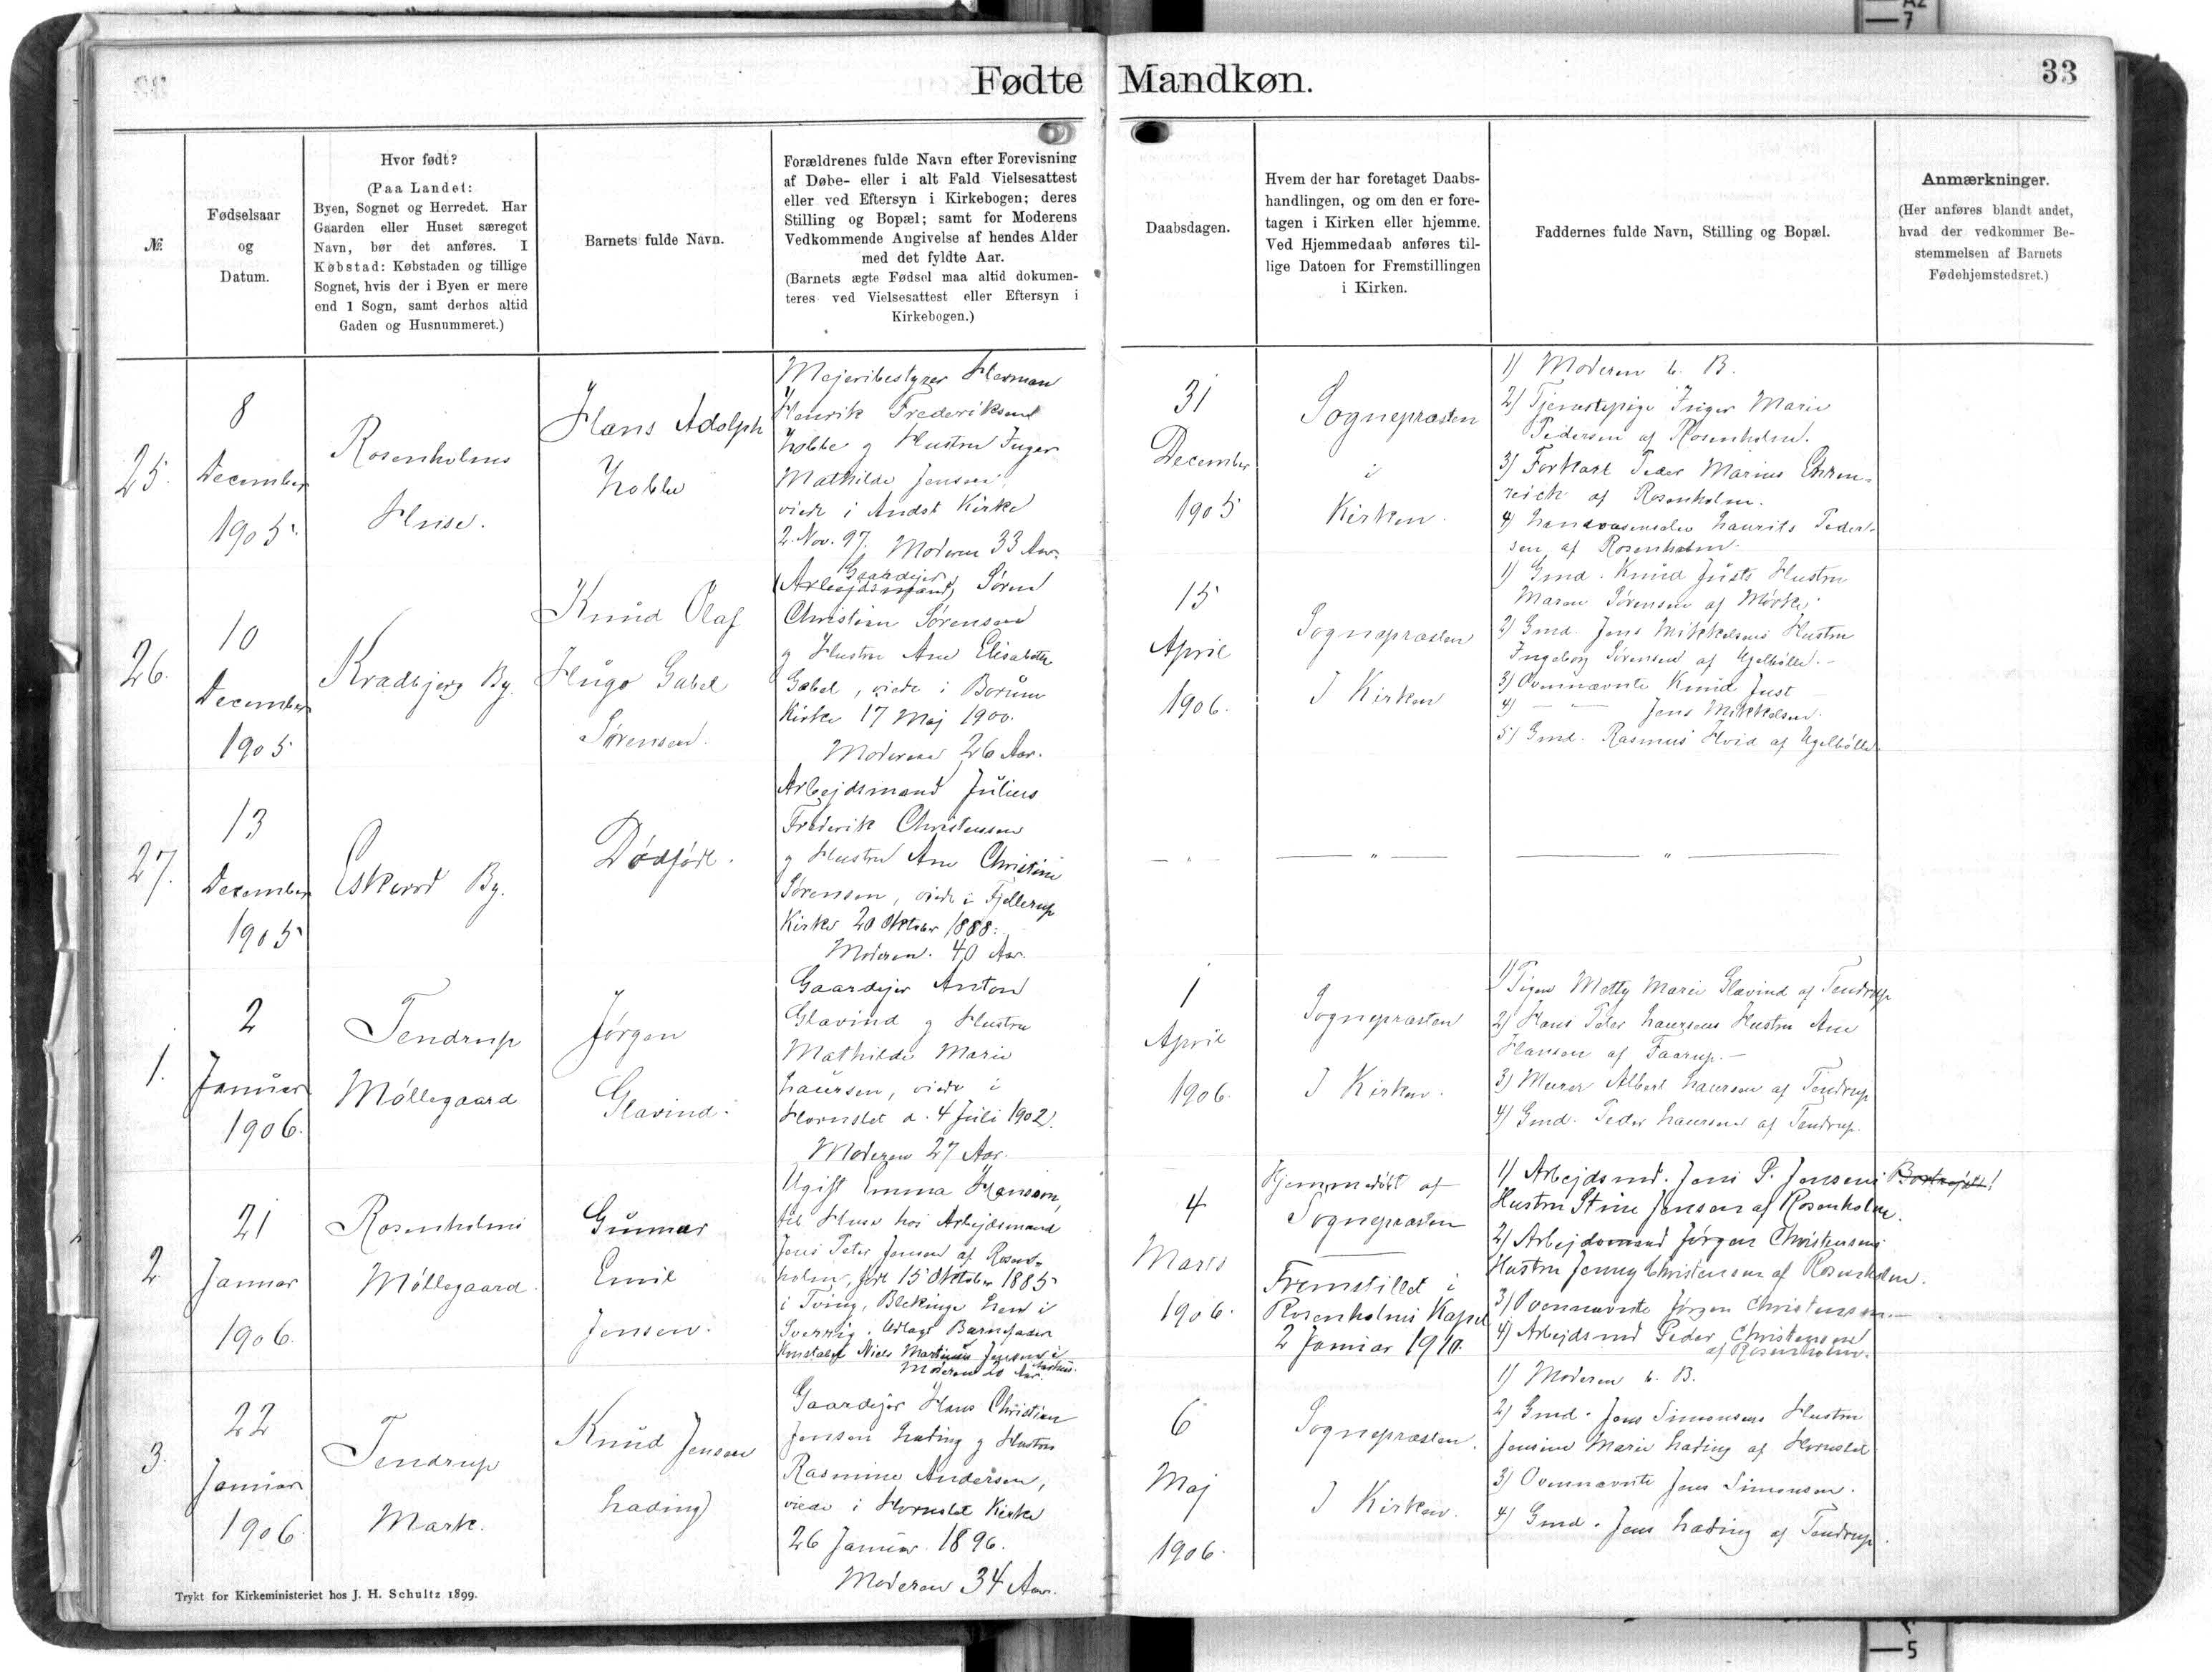 Fødte Mandkøn.
33
№
Fødselsaar
og
Datum.
Hvor født?
(Paa Landet:
Byen, Sognet og Herredet. Har
Gaarden eller Huset særeget
Navn, bør det anføres. I
Købstad: Købstaden og tillige
Sognet, hvis der i Byen er mere
end 1 Sogn, samt derhos altid
Gaden og Husnummeret.)
Barnets fulde Navn.
Forældrenes fulde Navn efter Forevisning
af Døbe- eller i alt Fald Vielsesattest
eller ved Eftersyn i Kirkebogen; deres
Stilling og Bopæl; samt for Moderens
Vedkommende Angivelse af hendes Alder
med det fyldte Aar.
(Barnets ægte Fødsel maa altid dokumen-
teres ved Vielsesattest eller Eftersyn i
Kirkebogen.)
Daabsdagen.
Hvem der har foretaget Daabs-
handlingen, og om den er fore-
tagen i Kirken eller hjemme.
Ved Hjemmedaab anføres til-
lige Datoen for Fremstillingen
i Kirken.
Faddernes fulde Navn, Stilling og Bopæl.
Anmærkninger.
(Her anføres blandt andet,
hvad der vedkommer Be-
stemmelsen af Barnets
Fødehjemstedsret.)
25.
8
December
1905.
Rosenholms
Huse.
Hans Adolph
Kobbe
Mejeribestyrer Herman
Henrik Frederiksen
Kobbe og Hustru Inger
Mathilde Jensen,
viede i Andst Kirke
2. Nov. 97. Moderen 33 Aar.
31
December
1905
Sognepræsten
i
Kirken.
1) Moderen b. B.
2) Tjenestepige Inger Marie
Pedersen af Rosenholm.
3) Forkarl Peder Marius Ehren-
reich af Rosenholm.
4) Laurits Peder-
sen af Rosenholm.
26.
10
December
1905
Kradbjerg By.
Knud Olaf
Hugo Gabel
Sørensen.
Gaardejer
(Arbejdsmand) Søren
Christian Sørensen
og Hustru Ane Elisabeth
Gabel, viede i Borum
Kirke 17 Maj 1900.
Moderen 26 Aar.
15
April
1906.
Sognepræsten
I Kirken
1) Gmd. Knud Justs Hustru
Maren Sørensen af Mørke
2) Gmd. Jens Mikkelsens Hustru
Ingeborg Sørensen af Ugelbølle.-
3) Ovennævnte Knud Just
4) — " — Jens Mikkelsen.
5) Gmd. Rasmus Hvid af Ugelbølle
27.
13
December
1905
Eskerod By.
Dødfødt.
Arbejdsmand Julius
Frederik Christensen
og Hustru Ane Christine
Sørensen, viede i Fjellerup
Kirke 20 Oktober 1888.
Moderen. 40 Aar.
— " —
— " —
— " —
1.
2
Januar
1906.
Tendrup
Møllegaard
Jørgen
Glavind.
Gaardejer Anton
Glavind og Hustru
Mathilde Marie
Laursen, viede i
Hornslet d. 4 Juli 1902.
Moderen 27 Aar.
1
April
1906.
Sognepræsten
I Kirken.
1) Pigen Metty Marie Glavind af Tendrup
2) Hans Peter Laursens Hustru Ane
Hansen af Taarup.-
3) Murer Albert Laursen af Tendrup
4) Gmd. Peder Laursen af Tendrup.
2
21
Januar
1906.
Rosenholms
Møllegaard
Gunnar
Emil
Jensen.
Ugift Emma Hansson,
til Huse hos Arbejdsmand
Jens Peter Jensen af Rosen-
holm, født 15 Oktober 1885
i Tving, Blekinge Len i
Sverrig. Udlagt Barnefader
Konstabel Niels Martinus Jensen i
Aarhus.
Moderen 20 Aar.
4
Marts
1906.
Hjemmedøbt af
Sognepræsten
Fremstillet i
Rosenholms Kapel
2 Januar 1910.
1) Arbejdsmd. Jens P. Jensens
Hustru Stine Jensen af Rosenholm.
2) Arbejdsmand Jørgen Christensens
Hustru Jenny Christensen af Rosenholm.
3) Ovennævnte Jørgen Christensen.—
4) Arbejdsmd Peder Christensen
af Rosenholm.
3.
22
Januar
1906
Tendrup
Mark.
Knud Jensen
Lading
Gaardejer Hans Christian
Jensen Lading og Hustru
Rasmine Andersen,
viede i Hornslet Kirke
26 Januar 1896.
Moderen 34 Aar.
6
Maj
1906.
Sognepræsten.
I Kirken.
1) Moderen b. B.
2) Gmd. Jens Simonsens Hustru
Jensine Marie Lading af Hornslet
3) Ovennævnte Jens Simonsen.
4) Gmd. Jens Lading af Tendrup.
Trykt for Kirkeministeriet hos J. H. Schultz 1899.